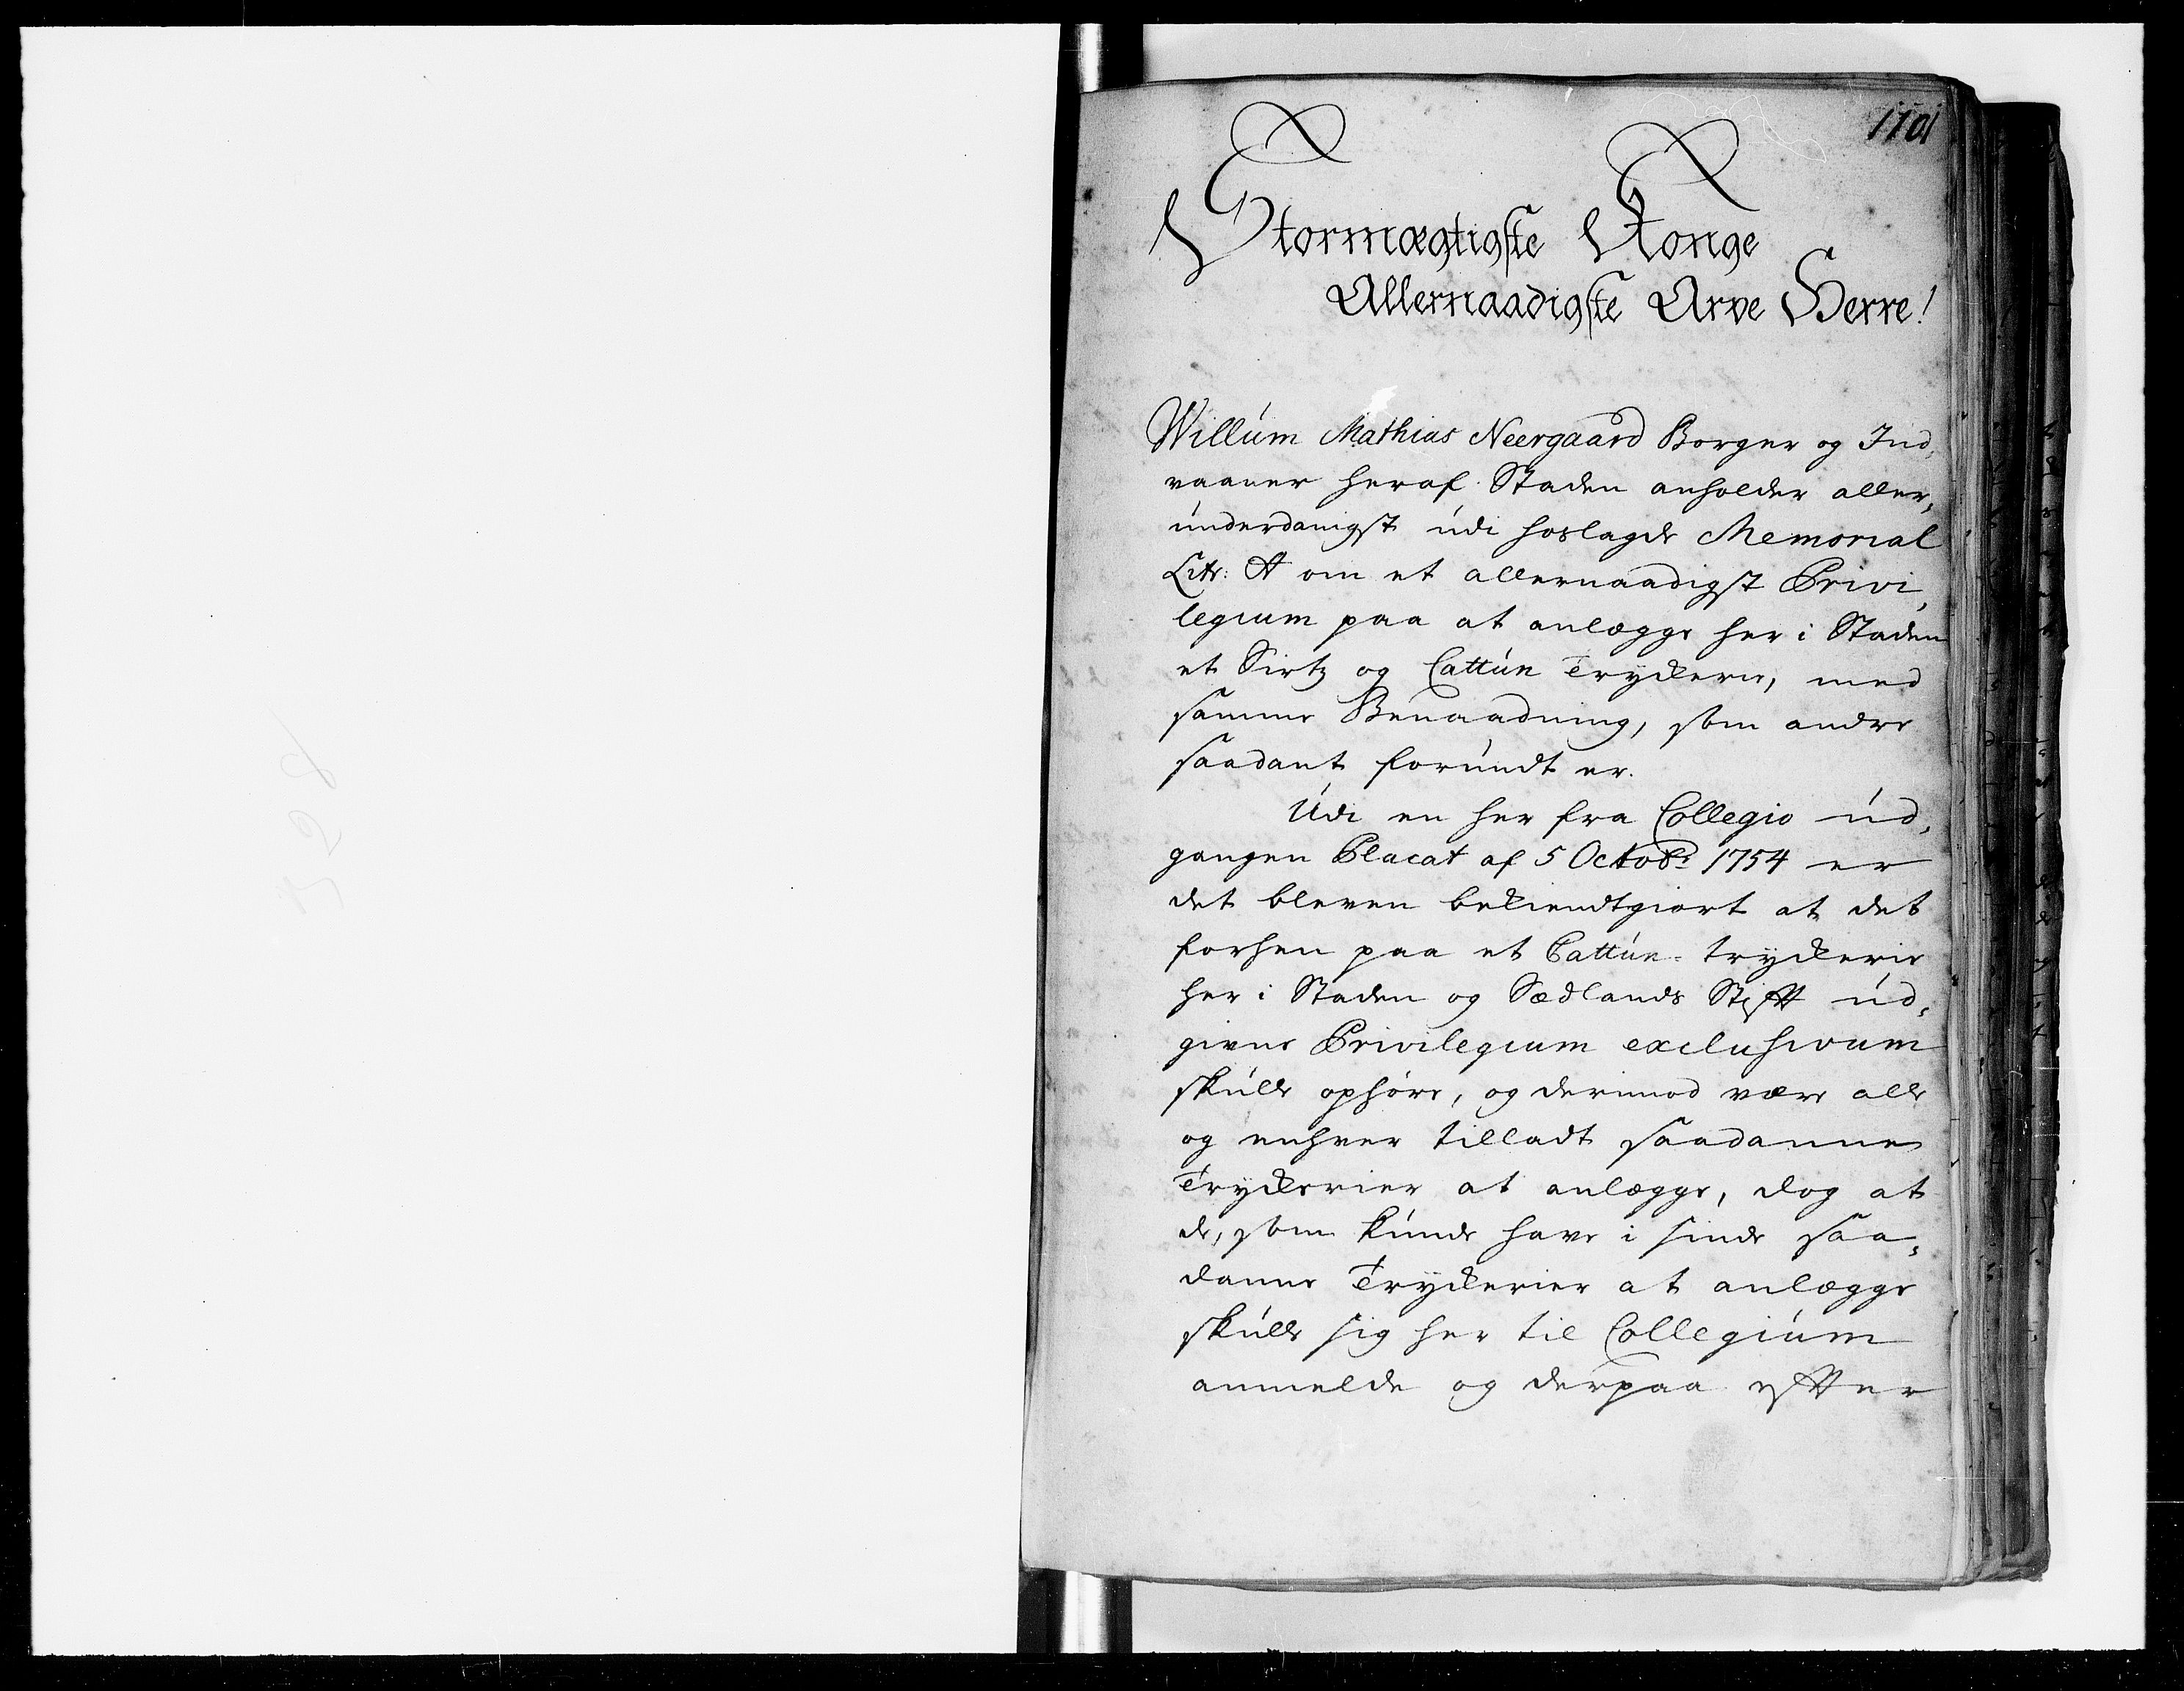 1101
Stormægtigste Konge
Allernaadigste Arve Herre!
Willum Mathias Neergaard Borger og Ind,
vaaner heraf Staden anholder aller,
underdanigst udi hoslagde Memorial
Litr: A om et allernaadigst Privi,
legium paa at anlægge her i Staden
et Sirtz og Cattun Tryckerie, med
samme Benaadning, som andre
saadant forundt er.
Udi en her fra Collegio ud,
gangen Placat af 5 Octobr 1754 er
det bleven bekiendtgiort at det
forhen paa et Cattun-tryckerie
her i Staden og Sædlands Stift ud,
givne Privilegium exclusivum
skulle ophøre, og derimod være alle
og enhver tilladt saadanne
Tryckerier at anlægge, dog at
de, som kunde have i sinde saa,
danne Tryckerier at anlægge
skulle sig her til Collegium
anmelde og derpaa efter